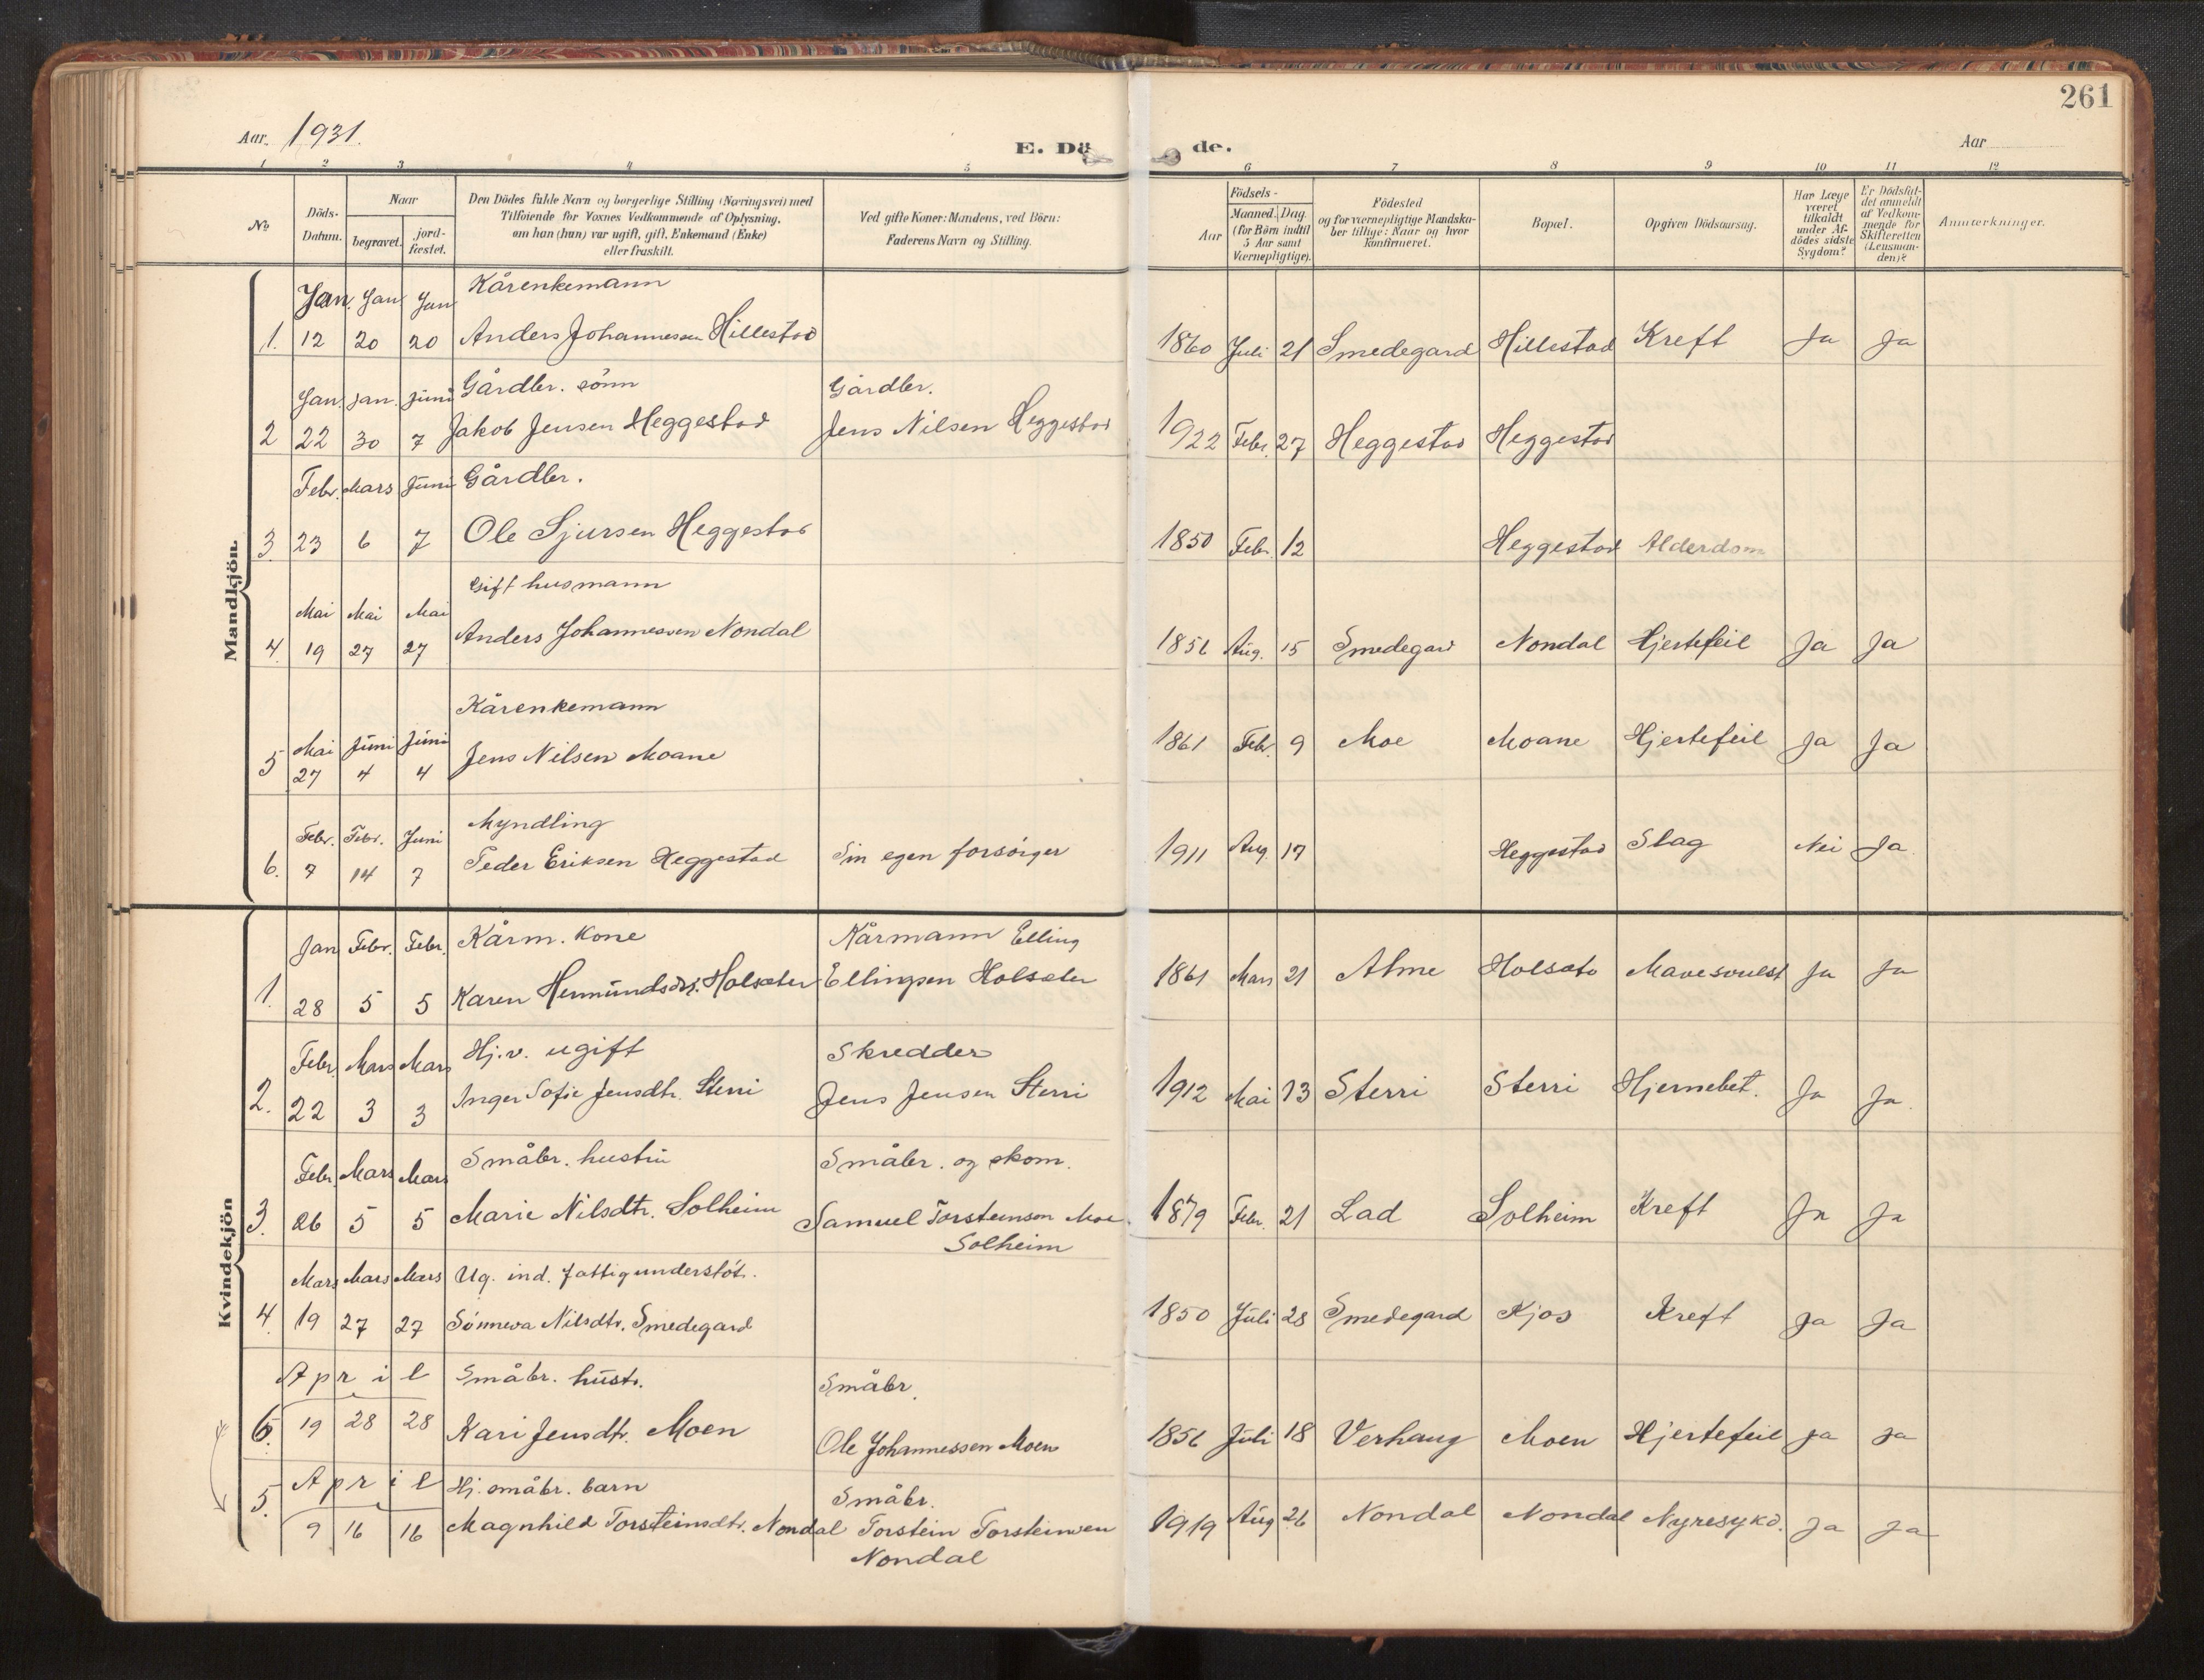 261
Aar. 1931.
E. Dö de.
Aar
1 2 3 4 5 6 7 8 9 10 11 12
No
Döds-Datum.
Naar
begravet.
jord-fæstet.
Den Dödes fulde Navn og borgerlige Stilling (Næringsvei) med
Tilföiende for Voxnes Vedkommende af Oplysning,
om han (hun) var ugift, gift, Enkemand (Enke)
eller fraskilt.
Ved gifte Koner: Mandens, ved Börn:
Faderens Navn og Stilling.
Födsels-
Aar
Maaned. Dag.
(for Börn indtil
5 Aar samt
Værnepligtige).
Födested
og for værnepligtige Mandska-
ber tillige: Naar og hvor
konfirmeret.
Bopæl.
Opgiven Dödsaarsag.
Har Læge
været
tilkaldt
under Af-
dödes sidste
Sygdom?
Er Dödsfal-
det anmeldt
af Vedkom-
mende for
Skifteretten
(Lensman-
den)?
Anmærkninger.
Mandkjön.
Jan. Jan Jan Kårenkemann
1. 12 20 20 Anders Johannessen Hillestad 1860 Juli 21 Smedegard Hillestad Kreft Ja Ja
Jan. Jan. Juni Gårdbr. sönn Gårdbr.
2 22 30 7 Jakob Jensen Heggestad Jens Nilsen Heggestad 1922 Febr. 27 Heggestad Heggestad
Febr. Mars Juni Gårdbr.
3 23 6 7 Ole Sjursen Heggestad 1850 Febr. 12 Heggestad Alderdom
Gift husmann
Mai Mai Mai
4. 19 27 27 Anders Johannessen Nondal 1856 Aug. 15 Smedegard Nondal Hjertefeil Ja Ja
Kårenkemann
Mai Juni Juni
5 27 4 4 Jens Nilsen Moane 1861 Febr. 9 Moe Moane Hjertefeil Ja Ja
Myndling
Febr. Febr. Juni
6. 7 14 7 Peder Eriksen Heggestad Sin egen forsörger 1911 Aug. 17 Heggestad Slag Nei Ja
Kvindekjön
Jan Febr. Febr. Kårm. kone Kårmann Elling
1. 28 5 5 Karen Hermundsdtr. Holsæter Ellingsen Holsæter 1861 Mars 21 Alme Holsæte Mavesvulst Ja Ja
Febr. Mars Mars Hj.v. ugift Skredder
2. 22 3 3 Inger Sofie Jensdtr. Sterri Jens Jensen Sterri 1912 Mai 13 Sterri Sterri Hjernebet. Ja Ja
Febr. Mars Mars Småbr. hustru Småbr. og skom.
3. 26 5 5 Marie Nilsdtr. Solheim Samuel Torsteinson Moe 1879 Febr. 21 Lad Solheim Kreft Ja Ja
Solheim
Mars Mars Mars Ug. ind. fattigunderstöt.
4. 19 27 27 Sönneva Nilsdtr. Smedegard 1850 Juli 28 Smedegard Kjos Kreft Ja Ja
April Småbr. hustr. Småbr.
6. 19 28 28 Kari Jensdtr. Moen Ole Johannessen Moen 1856 Juli 18 Verhaug Moen Hjertefeil Ja Ja
April Hj. småbr. barn Småbr.
5. 9 16 16 Magnhild Torsteinsdtr. Nondal Torstein Torsteinsen 1919 Aug 26 Nondal Nondal Nyresykd. Ja Ja
Nondal